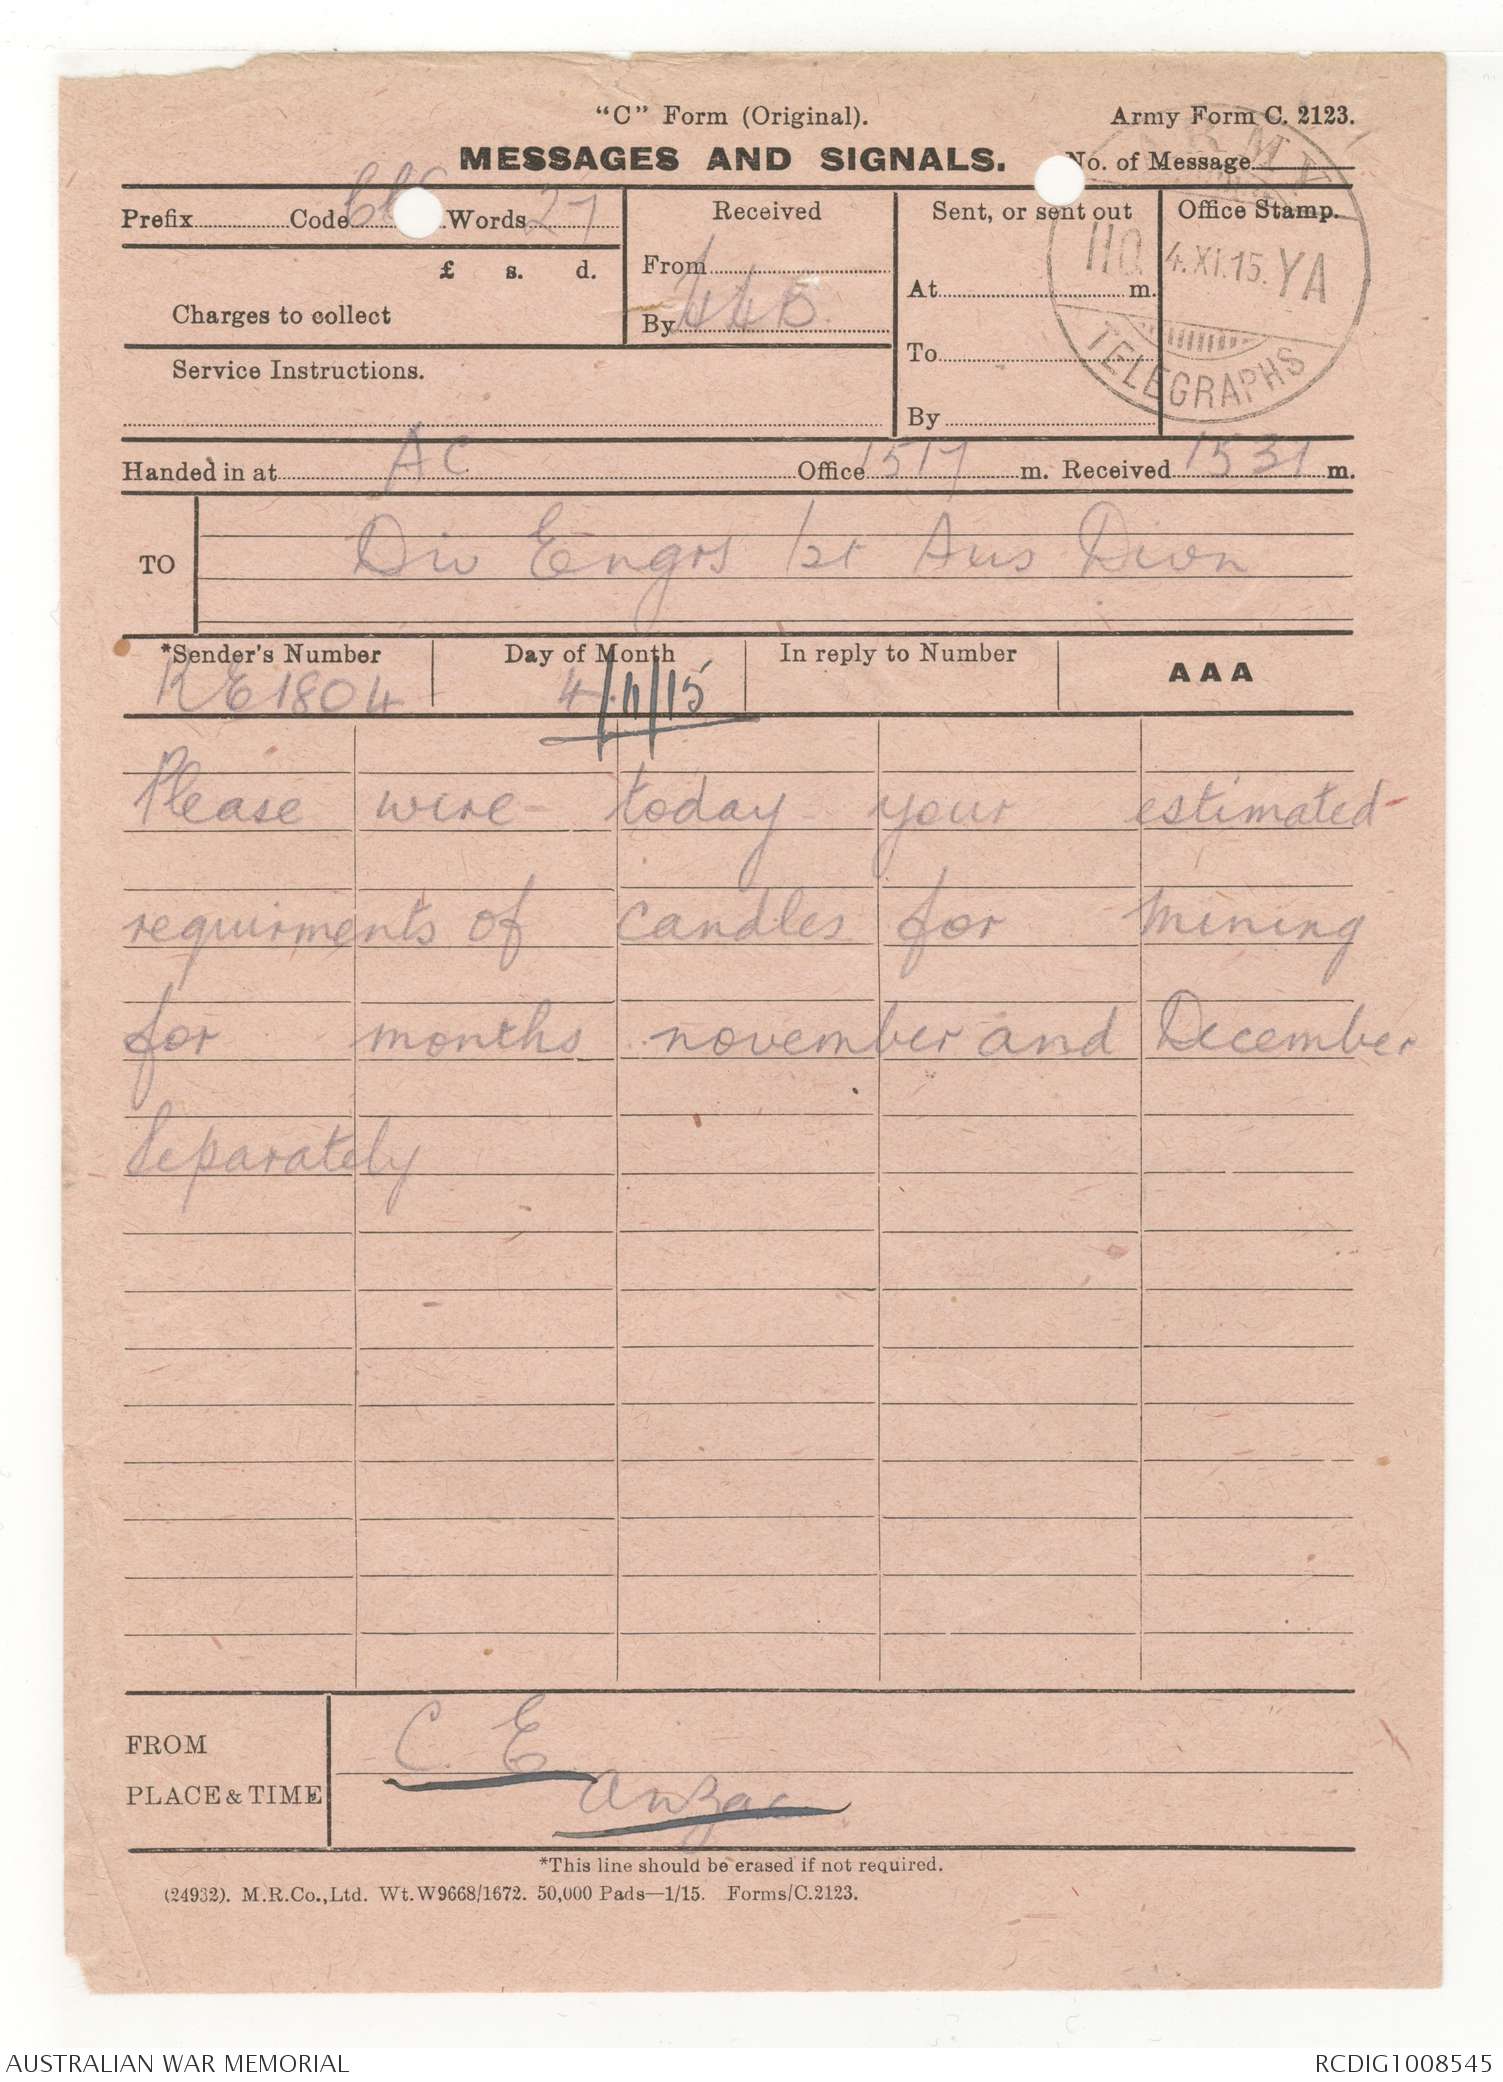 "C" Form (Original). Army Form C. 2123.
MESSAGES AND SIGNALS. No. of Message
Prefix Code Words 27
£ s. d.
Charges to collect
Service Instructions.
Received
From
By
Sent, or sent out
At m.
To
By
Office Stamp.
ARMY
HQ 4.XI.15. YA
TELEGRAPHS
Handed in at AC Office 1517 m. Received 1531 m.
TO Div Engrs 1st Aus Divn
*Sender's Number Day of Month In reply to Number AAA
KE1804 4/11/15
Please wire today your estimated
requirments of candles for mining
for months november and December
Separately
FROM C. E
PLACE & TIME anzac
*This line should be erased if not required.
(24932). M.R.Co.,Ltd. Wt.W9668/1672. 50,000 Pads—1/15. Forms/C.2123.
AUSTRALIAN WAR MEMORIAL RCDIG1008545